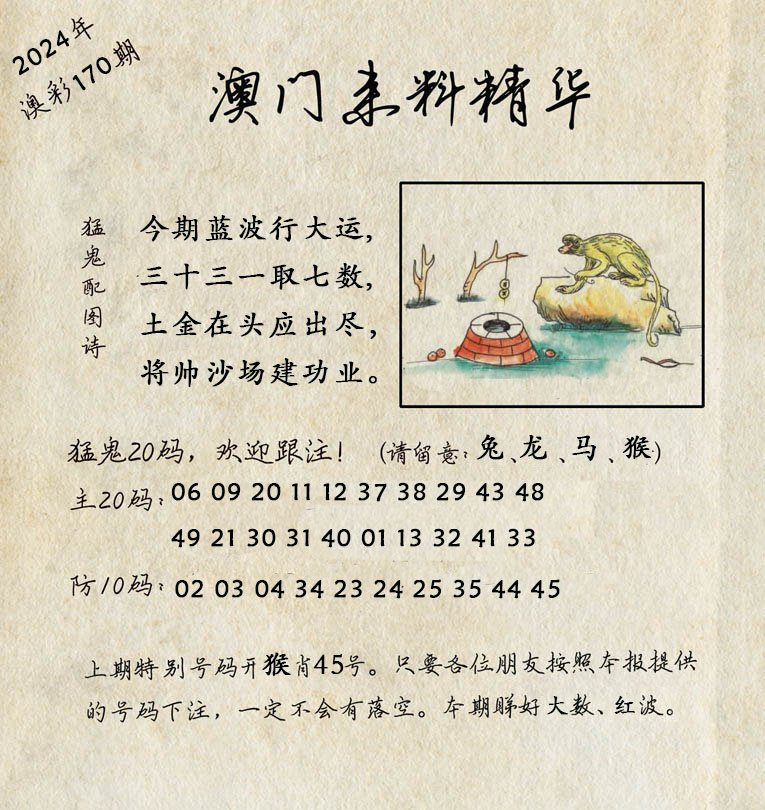 2024年
澳彩170期
澳门来料精华
猛鬼配图诗
今期蓝波行大运，
三十三一取七数，
土金在头应出尽，
将帅沙场建功业。
猛鬼20码，欢迎跟注！（请留意：兔、龙、马、猴）
主20码：06 09 20 11 12 37 38 29 43 48
49 21 30 31 40 01 13 32 41 33
防10码：02 03 04 34 23 24 25 35 44 45
上期特别号码开猴肖45号。只要各位朋友按照本报提供
的号码下注，一定不会有落空。本期睇好大数、红波。